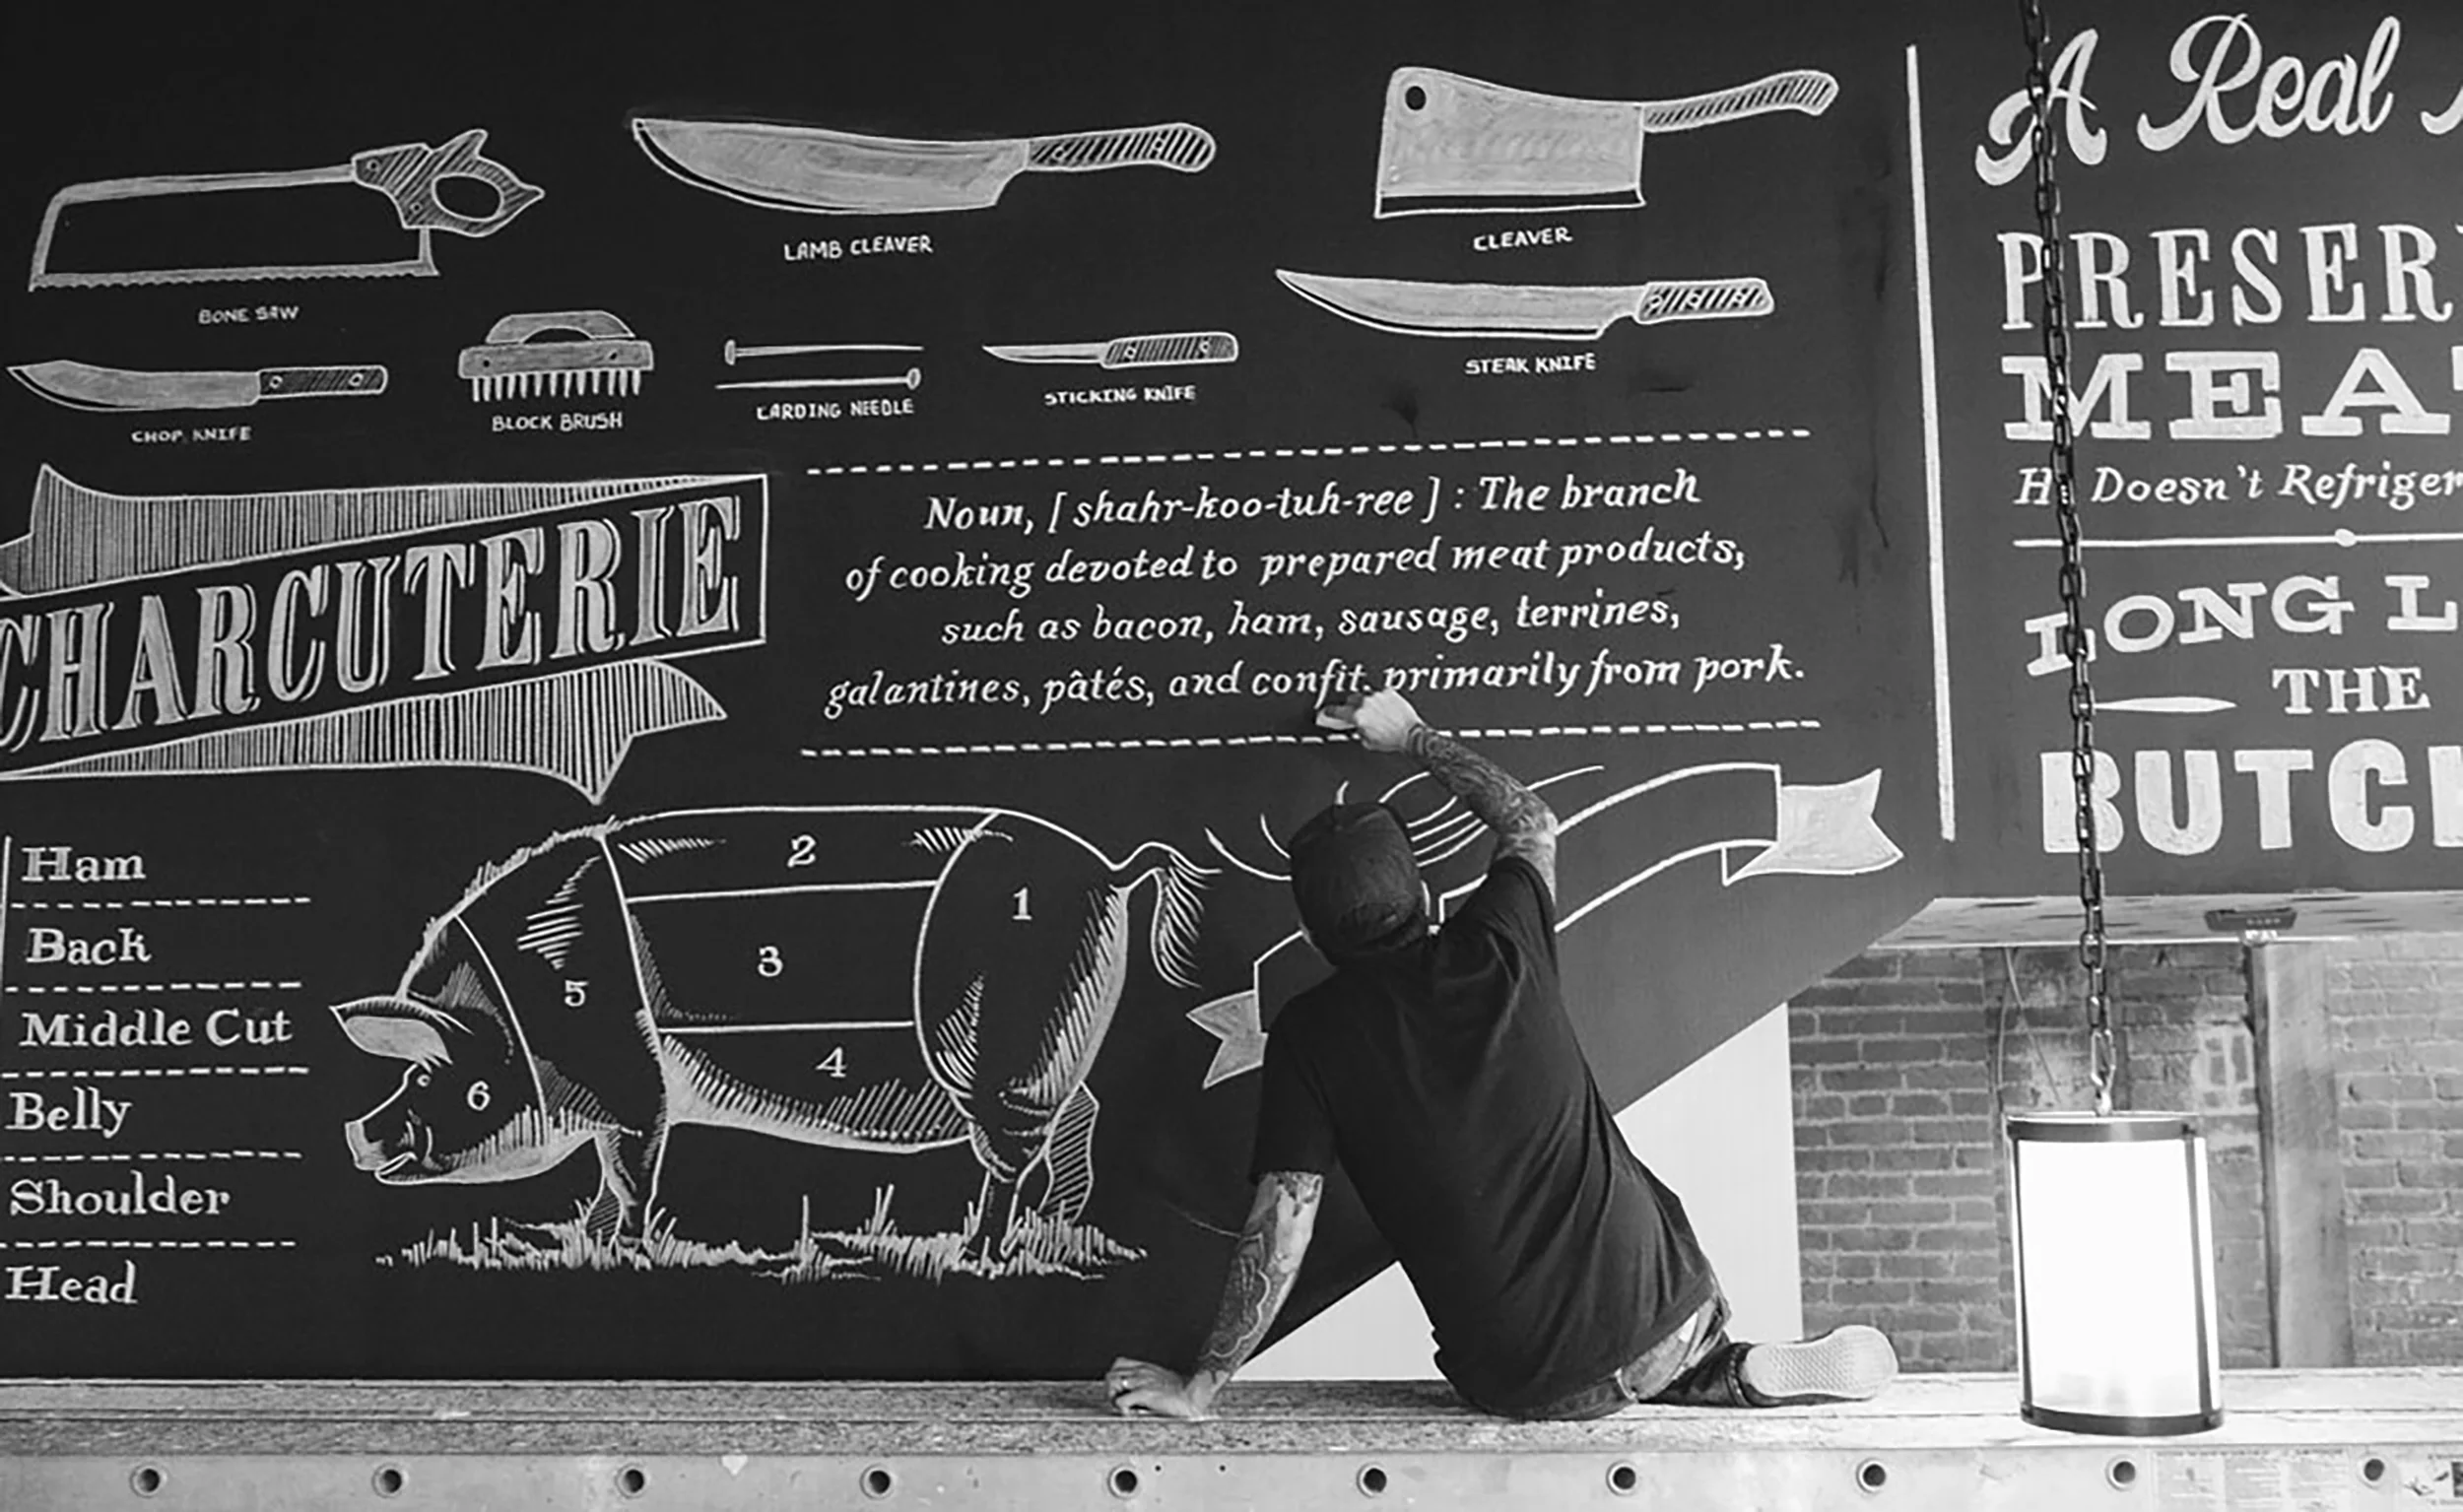 BONE SAW
LAMB CLEAVER
CLEAVER
CHOP KNIFE
BLOCK BRUSH
LARDING NEEDLE
STICKING KNIFE
STEAK KNIFE
CHARCUTERIE
Noun, [ shahr-koo-tuh-ree ] : The branch
of cooking devoted to prepared meat products,
such as bacon, ham, sausage, terrines,
galantines, pâtés, and confit, primarily from pork.
Ham
Back
Middle Cut
Belly
Shoulder
Head
1
2
3
4
5
6
A Real
PRESER
MEA
He Doesn't Refriger
LONG L
THE
BUTC